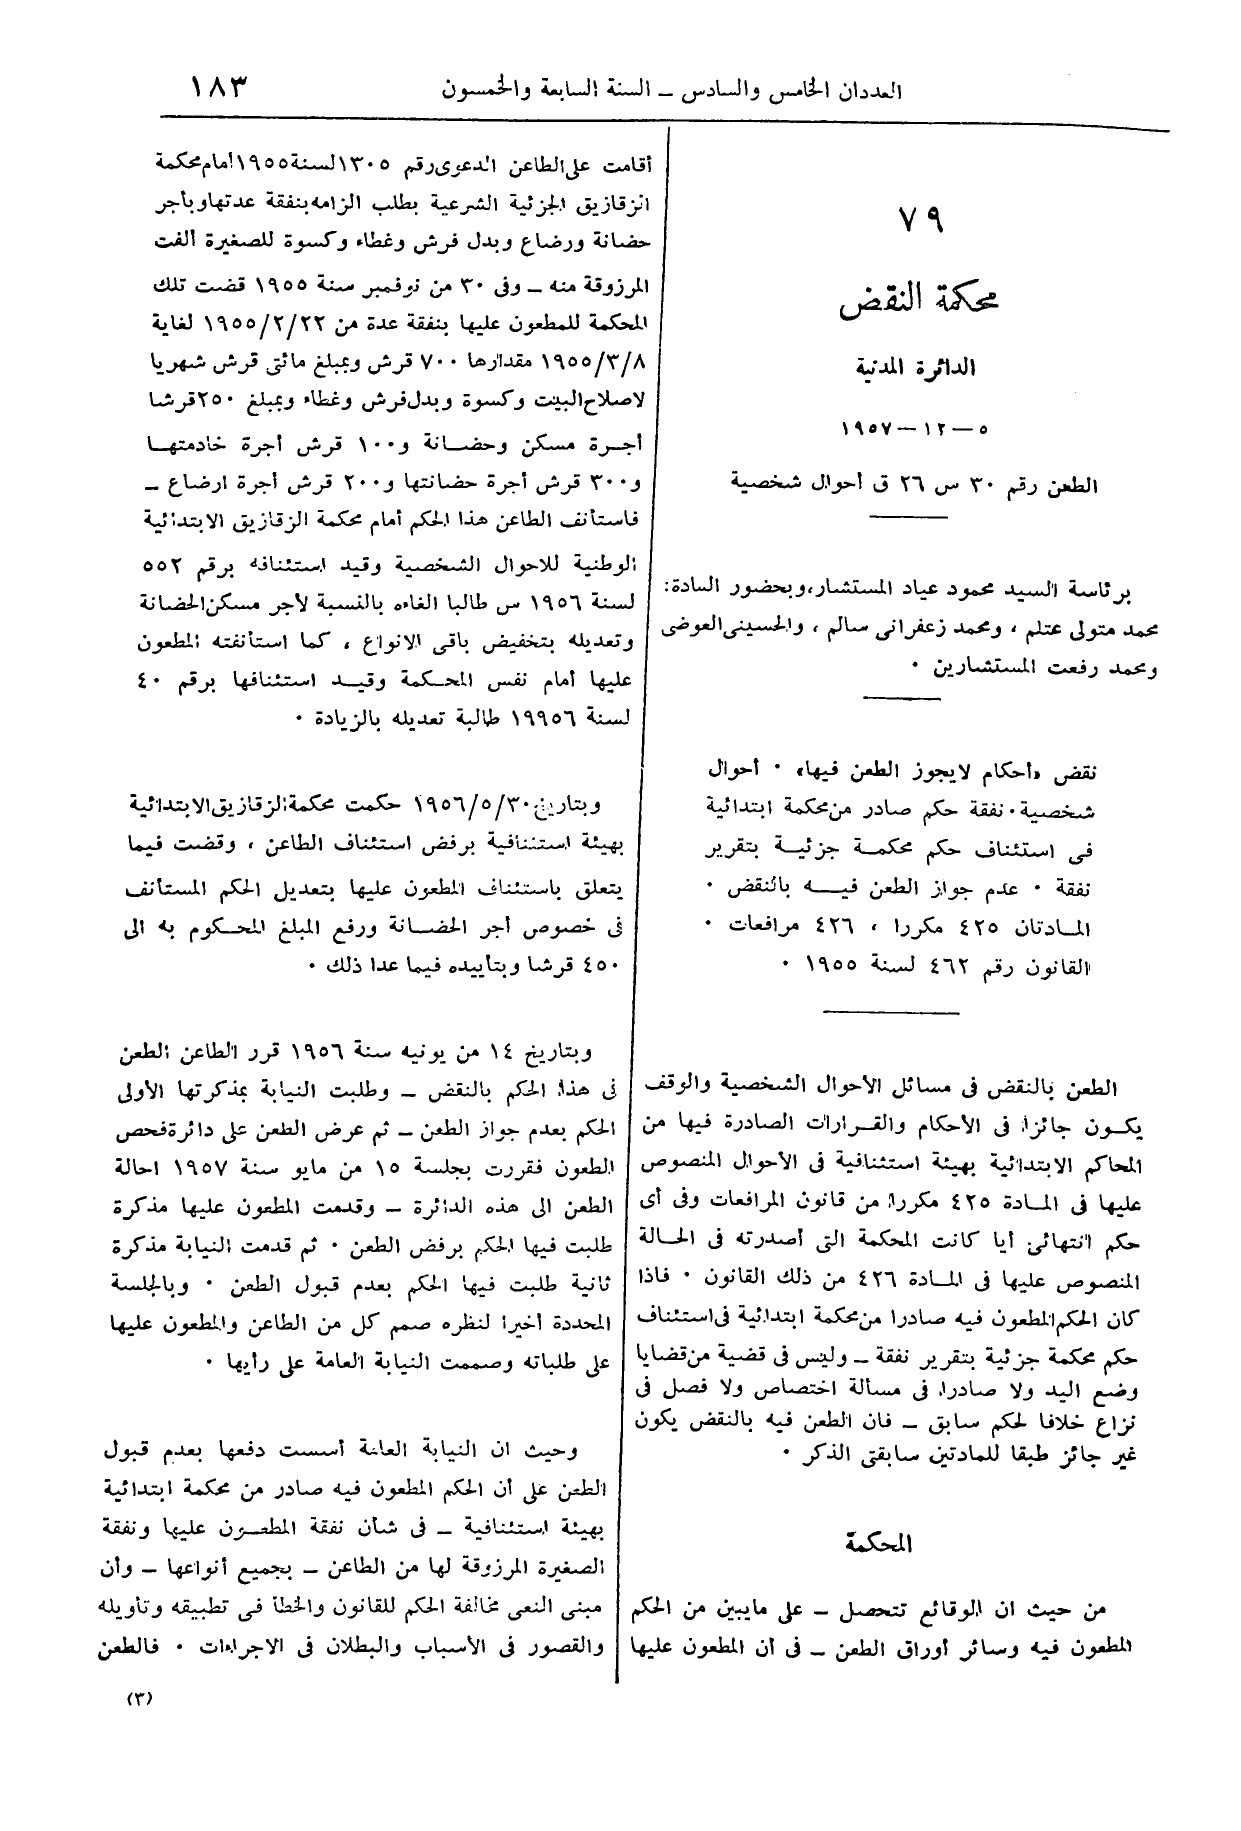 العددان الخامس والسادس – السنة السابعة والخمسون ١٨٣
٧٩
محكمة النقض
الدائرة المدنية
٥ – ١٢ – ١٩٥٧
الطعن رقم ٣٠ س ٢٦ ق أحوال شخصية
برئاسة السيد محمود عياد المستشار، وبحضور السادة:
محمد متولى عتلم ، ومحمد زعفرانى سالم ، والحسينى العوضى
ومحمد رفعت المستشارين .
نقض «أحكام لايجوز الطعن فيها» . أحوال
شخصية . نفقة حكم صادر من محكمة ابتدائية
فى استئناف حكم محكمة جزئية بتقرير
نفقة . عدم جواز الطعن فيه بالنقض .
المادتان ٤٢٥ مكررا ، ٤٢٦ مرافعات .
القانون رقم ٤٦٢ لسنة ١٩٥٥ .
الطعن بالنقض فى مسائل الأحوال الشخصية والوقف
يكون جائزا فى الأحكام والقرارات الصادرة فيها من
المحاكم الابتدائية بهيئة استئنافية فى الأحوال المنصوص
عليها فى المادة ٤٢٥ مكررا من قانون المرافعات وفى أى
حكم انتهائى أيا كانت المحكمة التى أصدرته فى الحالة
المنصوص عليها فى المادة ٤٢٦ من ذلك القانون . فاذا
كان الحكم المطعون فيه صادرا من محكمة ابتدائية فى استئناف
حكم محكمة جزئية بتقرير نفقة – وليس فى قضية من قضايا
وضع اليد ولا صادرا فى مسألة اختصاص ولا فصل فى
نزاع خلافا لحكم سابق – فان الطعن فيه بالنقض يكون
غير جائز طبقا للمادتين سابقتى الذكر .
المحكمة
من حيث ان الوقائع تتحصل – على مايبين من الحكم
المطعون فيه وسائر أوراق الطعن – فى أن المطعون عليها
أقامت على الطاعن الدعوى رقم ١٣٠٥ لسنة ١٩٥٥ أمام محكمة
الزقازيق الجزئية الشرعية بطلب الزامه بنفقة عدتها وبأجر
حضانة ورضاع وبدل فرش وغطاء وكسوة للصغيرة ألفت
المرزوقة منه – وفى ٣٠ من نوفمبر سنة ١٩٥٥ قضت تلك
المحكمة للمطعون عليها بنفقة عدة من ١٩٥٥/٢/٢٢ لغاية
١٩٥٥/٣/٨ مقدارها ٧٠٠ قرش وبمبلغ مائتى قرش شهريا
لاصلاح البيت وكسوة وبدل فرش وغطاء وبمبلغ ٢٥٠ قرشا
أجرة مسكن وحضانة و١٠٠ قرش أجرة خادمتها
و٣٠٠ قرش أجرة حضانتها و٢٠٠ قرش أجرة ارضاع –
فاستأنف الطاعن هذا الحكم أمام محكمة الزقازيق الابتدائية
الوطنية للاحوال الشخصية وقيد استئنافه برقم ٥٥٢
لسنة ١٩٥٦ س طالبا الغاءه بالنسبة لأجر مسكن الحضانة
وتعديله بتخفيض باقى الانواع ، كما استأنفته المطعون
عليها أمام نفس المحكمة وقيد استئنافها برقم ٤٠
لسنة ١٩٩٥٦ طالبة تعديله بالزيادة .
وبتاريخ ١٩٥٦/٥/٣٠ حكمت محكمة الزقازيق الابتدائية
بهيئة استئنافية برفض استئناف الطاعن ، وقضت فيما
يتعلق باستئناف المطعون عليها بتعديل الحكم المستأنف
فى خصوص أجر الحضانة ورفع المبلغ المحكوم به الى
٤٥٠ قرشا وبتأييده فيما عدا ذلك .
وبتاريخ ١٤ من يونيه سنة ١٩٥٦ قرر الطاعن الطعن
فى هذا الحكم بالنقض – وطلبت النيابة بمذكرتها الأولى
الحكم بعدم جواز الطعن – ثم عرض الطعن على دائرة فحص
الطعون فقررت بجلسة ١٥ من مايو سنة ١٩٥٧ احالة
الطعن الى هذه الدائرة – وقدمت المطعون عليها مذكرة
طلبت فيها الحكم برفض الطعن . ثم قدمت النيابة مذكرة
ثانية طلبت فيها الحكم بعدم قبول الطعن . وبالجلسة
المحددة أخيرا لنظره صمم كل من الطاعن والمطعون عليها
على طلباته وصممت النيابة العامة على رأيها .
وحيث ان النيابة العامة أسست دفعها بعدم قبول
الطعن على أن الحكم المطعون فيه صادر من محكمة ابتدائية
بهيئة استئنافية – فى شأن نفقة المطعون عليها ونفقة
الصغيرة المرزوقة لها من الطاعن – بجميع أنواعها – وأن
مبنى النعى مخالفة الحكم للقانون والخطأ فى تطبيقه وتأويله
والقصور فى الأسباب والبطلان فى الاجراءات . فالطعن
(٣)